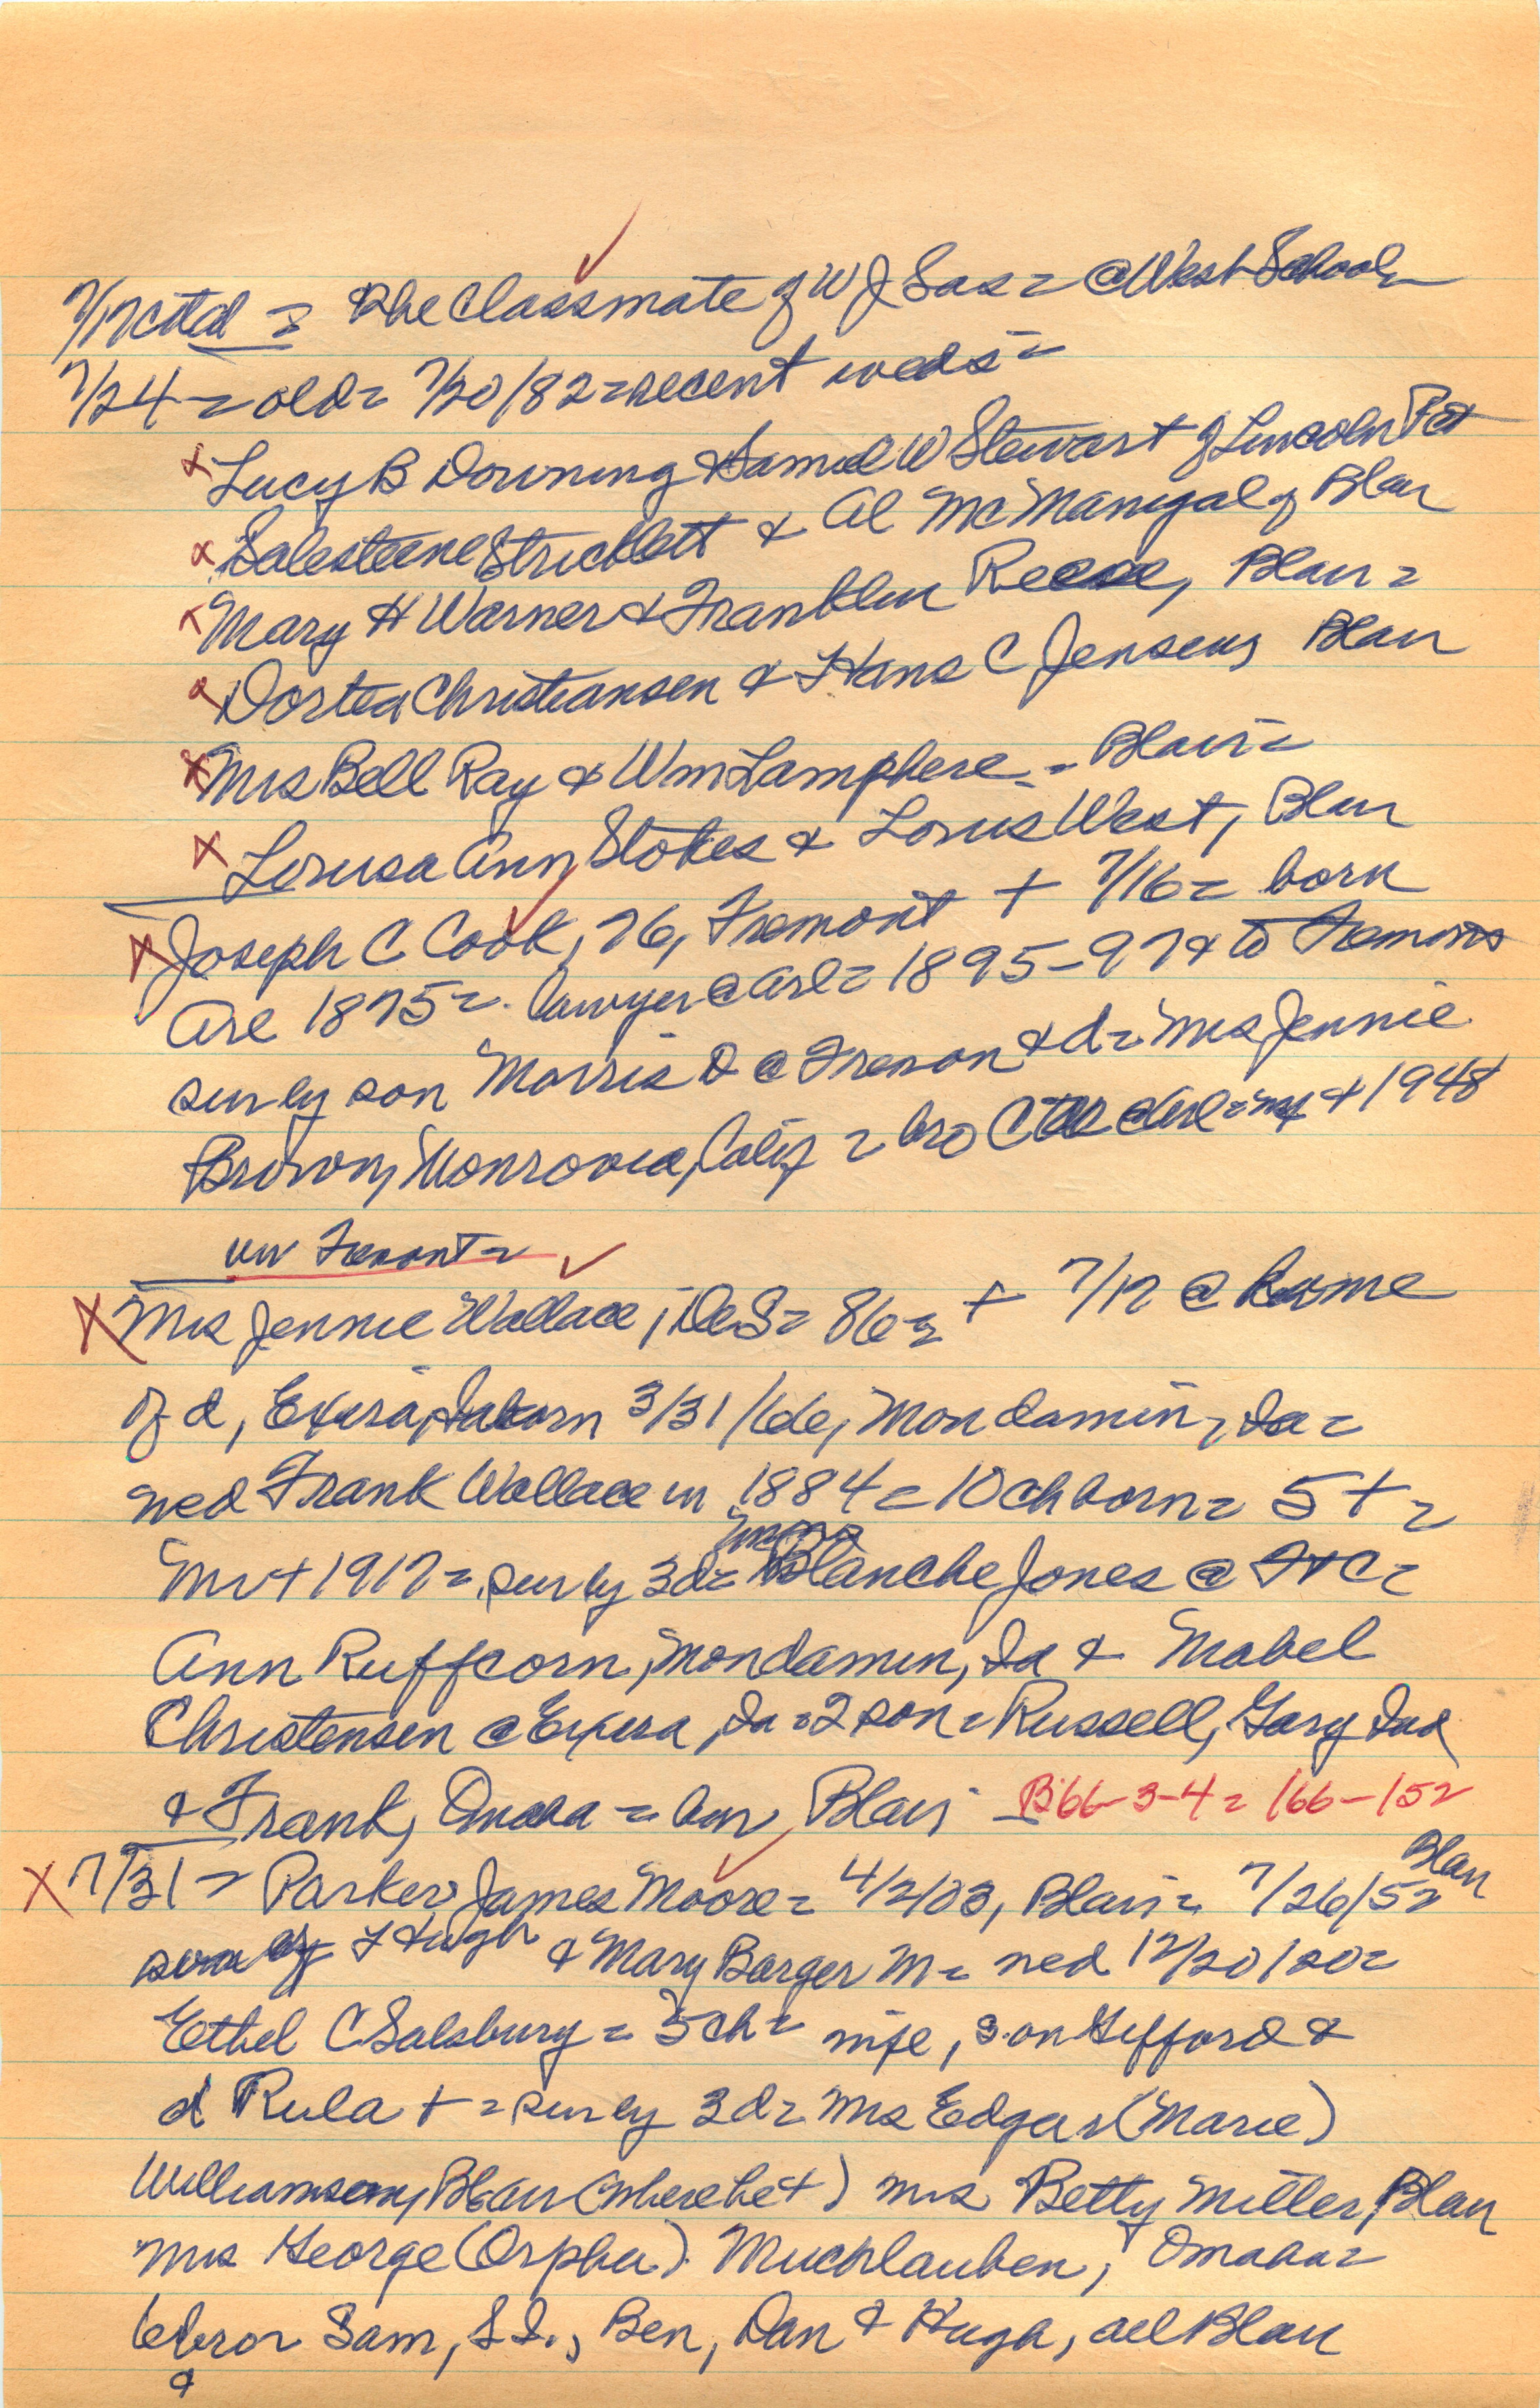 7/17 ctd = She classmate of W J Sas = @ West School =
7/24 = old = 7/20/82 = recent weds =
x Lucy B Downing & Samuel W Stewart of Lincoln Pct
x Salesteene Stricklett & Al McManigal of Blair
x Mary H Warner & Franklin Reese, Blair =
x Dortea Christiansen & Hans C Jensen, Blair
x Mrs Bell Ray & Wm Lamphere = Blair =
x Lovisa Ann Stokes & Lovis West, Blair
x Joseph C Cook, 76, Fremont + 7/16 = born
Arl 1875 = lawyer @ Arl = 1895-97 & to Fremont
surv by son Morris D @ Fremon & d = Mrs Jennie
Brown, Monrovia, Calif = bro C @ Arl = + 1948
bur Fremont =
X Mrs Jennie Wallace, DeS = 86 = + 7/17 @ home
of d, Exira, Ia born 3/31/66, Mondamin, Ia =
wed Frank Wallace in 1884 = 10 ch born = 5 + =
Mr + 1917 = surv by 3 d = Emma Blanche Jones @ Ft C =
Ann Ruffcorn, Mondamin, Ia & Mabel
Christensen @ Exira, Ia = 2 son = Russell, Gary Ind
& Frank, Omaha = bur Blair - B 66-3-4 = 166-152
X 7/31 = Parker James Moore = 4/2/03, Blair = 7/26/52 Blair
son of Hugh & Mary Barger M = wed 12/20/20 =
Ethel C Salsbury = 5 ch = wife, son Gifford &
d Rula + = surv by 3 d = Mrs Edgar (Marie)
Williamson, Blair (where he +) Mrs Betty Miller, Blair
Mrs George (Orpha) Muchlauben, Omaha =
bror Sam, S.D., Ben, Dan & Hugh, all Blair
&